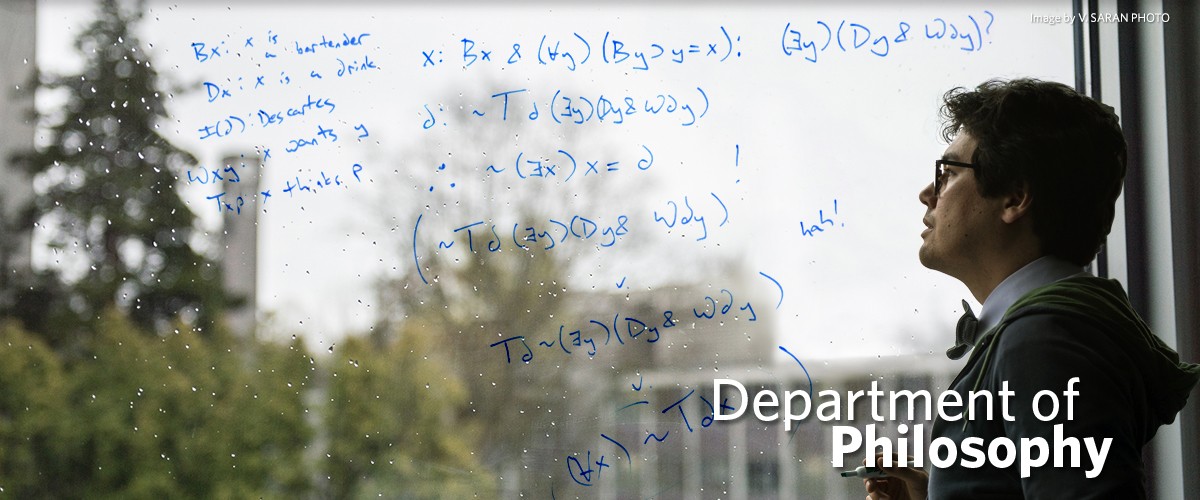 Image by V. SARAN PHOTO
Bx: x is a bartender
Dx: x is a drink.
I(∂): Descartes
Wxy: x wants y
Txp: x thinks P.
x: Bx & (∀y) (By ⊃ y = x): (∃y) (Dy & W∂y)?
∂: ~T∂ (∃y)(Dy & W∂y)
∴ ~(∃x) x = ∂ !
(~T∂ (∃y)(Dy & W∂y)
hah!
∨
T∂ ~(∃y)(Dy & W∂y))
∨
(∀x) ~T∂x )
Department of
Philosophy